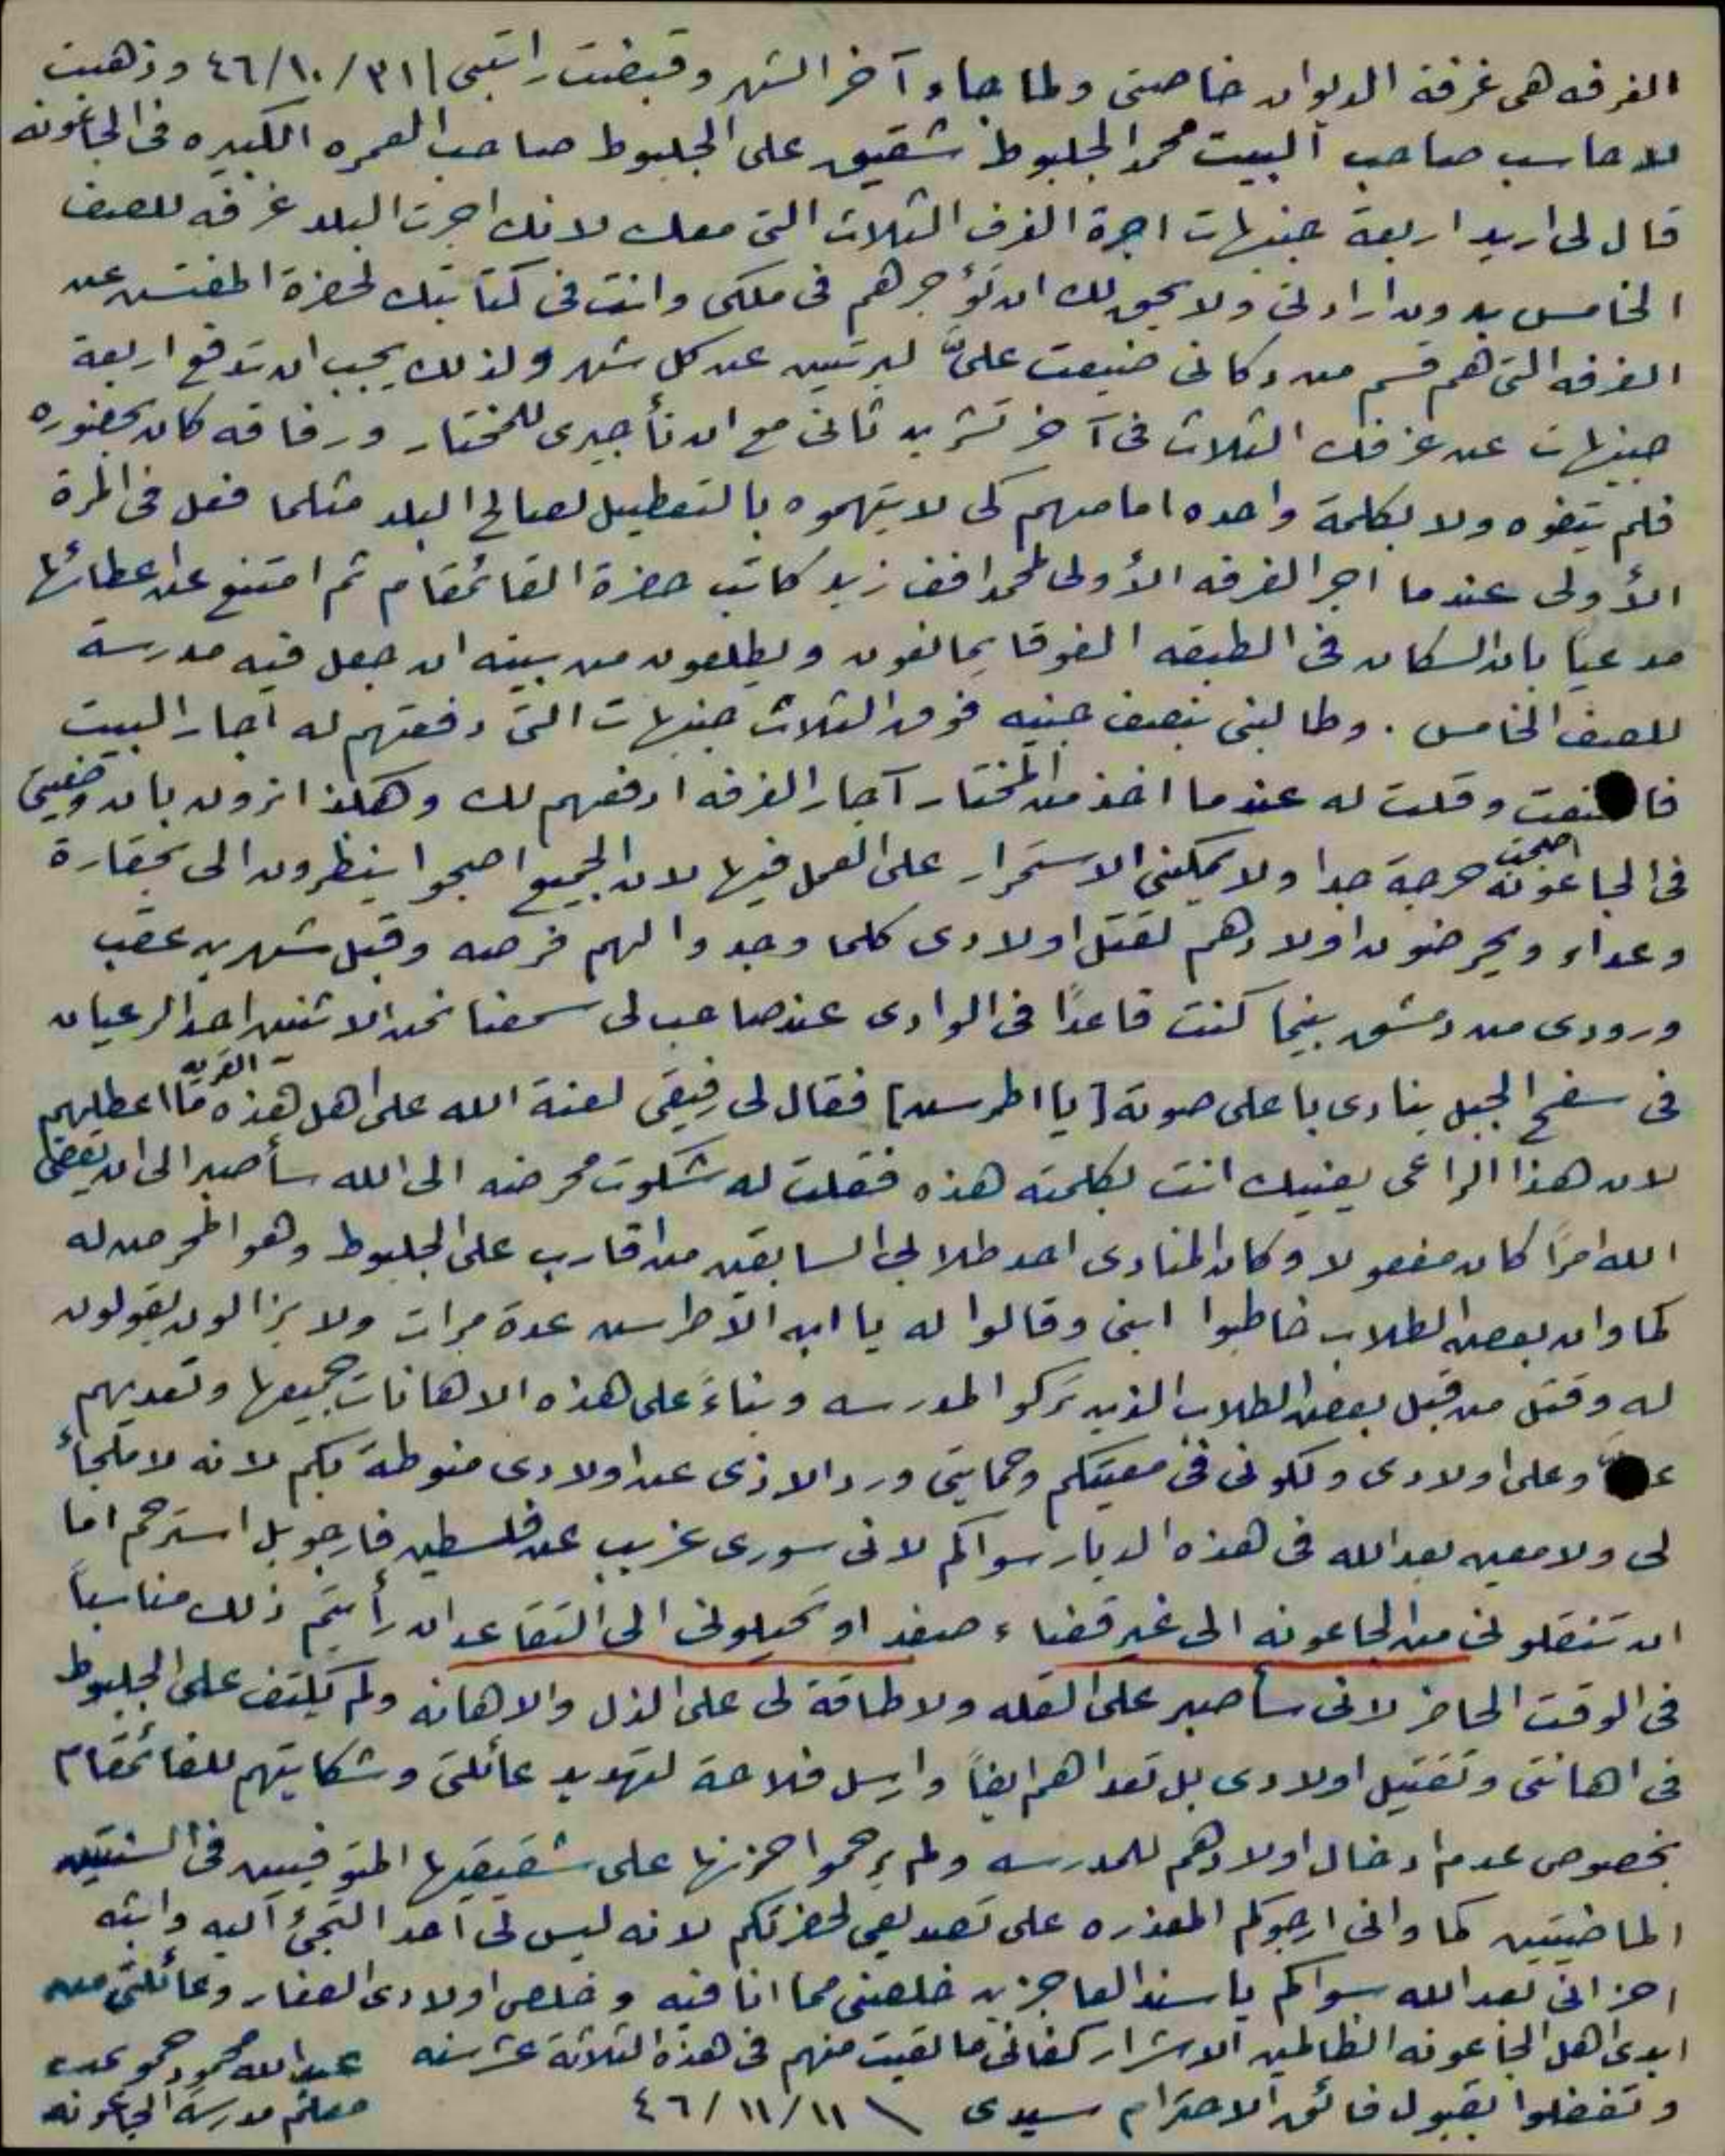 الغرفه هى غرفة الديوان خاصتى ولما جاء آخر الشهر وقبضت راتبى ٣١/١٠/٤٦ وذهبت
للاحاسب صاحب البيت محمد الجلبوط شقيق على الجلبوط صاحب العمره الكبيره فى الجاعونه
قال لى اريد اربعة جنيهات اجرة الغرف الثلاث التى معك لانك اجرت البلد غرفه للصف
الخامس بدون ارادتى ولا يحق لك ان تؤجرهم فى ملكى وانت فى كتابتك لحضرة المفتش عن
الغرفه التى هم قسم من دكانى ضيعت علىّ ليرتين عن كل شهر ولذلك يجب ان تدفع اربعة
جنيهات عن غرفك الثلاث فى آخر تشرين ثانى مع ان تأجيرى للمختار ورفاقه كان بحضوره
فلم يتفوه ولا بكلمة واحده امامهم كى لا يتهموه بالتعطيل لصالح البلد مثلما فعل فى المرة
الأولى عندما اجر الغرفه الأولى لمحمد افف زيد كاتب حضرة القائمقام ثم امتنع عن اعطائها
مدعياً بان السكان فى الطبقه الفوقا يمانعون ويطلعون من بيته ان جعل فيه مدرسة
للصف الخامس . وطالبنى بنصف جنيه فوق الثلاث جنيهات التى دفعتهم له اجار البيت
وقلت له عندما اخذ من المختار آجار الغرفه ادفعهم لك وهكذا ترون بان وضعيتى
فى الجاعونه اصبحت حرجة جدا ولا يمكننى الاستمرار على العمل فيها لان الجميع اصبحوا ينظرون الى بحقارة
وعداء ويحرضون اولادهم لقتل اولادى كلما وجدوا لهم فرصه وقبل شهرين عقب
ورودى من دمشق بينما كنت قاعدًا فى الوادى عند صاحب لى سمعنا نحن الاثنين احد الرعيان
فى سفح الجبل ينادى باعلى صوته [يا اطرسن] فقال لى رفيقى لعنة الله على اهل هذه القريه ما اعطلهم
لان هذا الراعى يعنيك انت بكلمته هذه فقلت له شكوت محرضه الى الله سأصبر الى ان يقضى
الله امرًا كان مفعولا وكان المنادى احد طلابى السابقين من اقارب على الجلبوط وهو المحرض له
كما وان بعض الطلاب خاطبوا ابنى وقالوا له يا ابن الاطرسن عدة مرات ولا يزالون يقولون
له وقتل من قبل بعض الطلاب الذين تركوا المدرسه وبناءً على هذه الاهانات جميعها وتعديهم
وعلى اولادى ولكونى فى معيتكم وحمايتى ورد الاذى عن اولادى منوطة بكم لانه لا ملجأ
لى ولا معين بعد الله فى هذه الديار سواكم لانى سورى غريب عن فلسطين فارجو بل استرحم اما
ان تنقلونى من الجاعونه الى غير قضاء صفد او تحيلونى الى التقاعد ان رأيتم ذلك مناسباً
فى الوقت الحاضر لانى سأصبر على القله ولا طاقة لى على الذل والاهانه ولم يكتف على الجلبوط
فى اهانتى وتقتيل اولادى بل تعداهم ايضاً وارسل فلاحة لتهديد عائلتى وشكايتهم للقائمقام
بخصوص عدم ادخال اولادهم للمدرسه ولم يرحموا حزنها على شقيقيها المتوفيين فى السنتين
الماضيتين كما وانى ارجوكم المعذره على تصديعى لحضرتكم لانه ليس لى احد التجئ اليه وابثه
احزانى بعد الله سواكم يا سند العاجزين خلصنى مما انا فيه وخلص اولادى الصغار وعائلتى من
ايدى اهل الجاعونه الظالمين الاشرار كفانى ما لقيت منهم فى هذه الثلاثة عشر سنه عبدالله محمود حمو
وتفضلوا بقبول فائق الاحترام سيدى \ ١١/١١/٤٦ معلم مدرسة الجاعونه